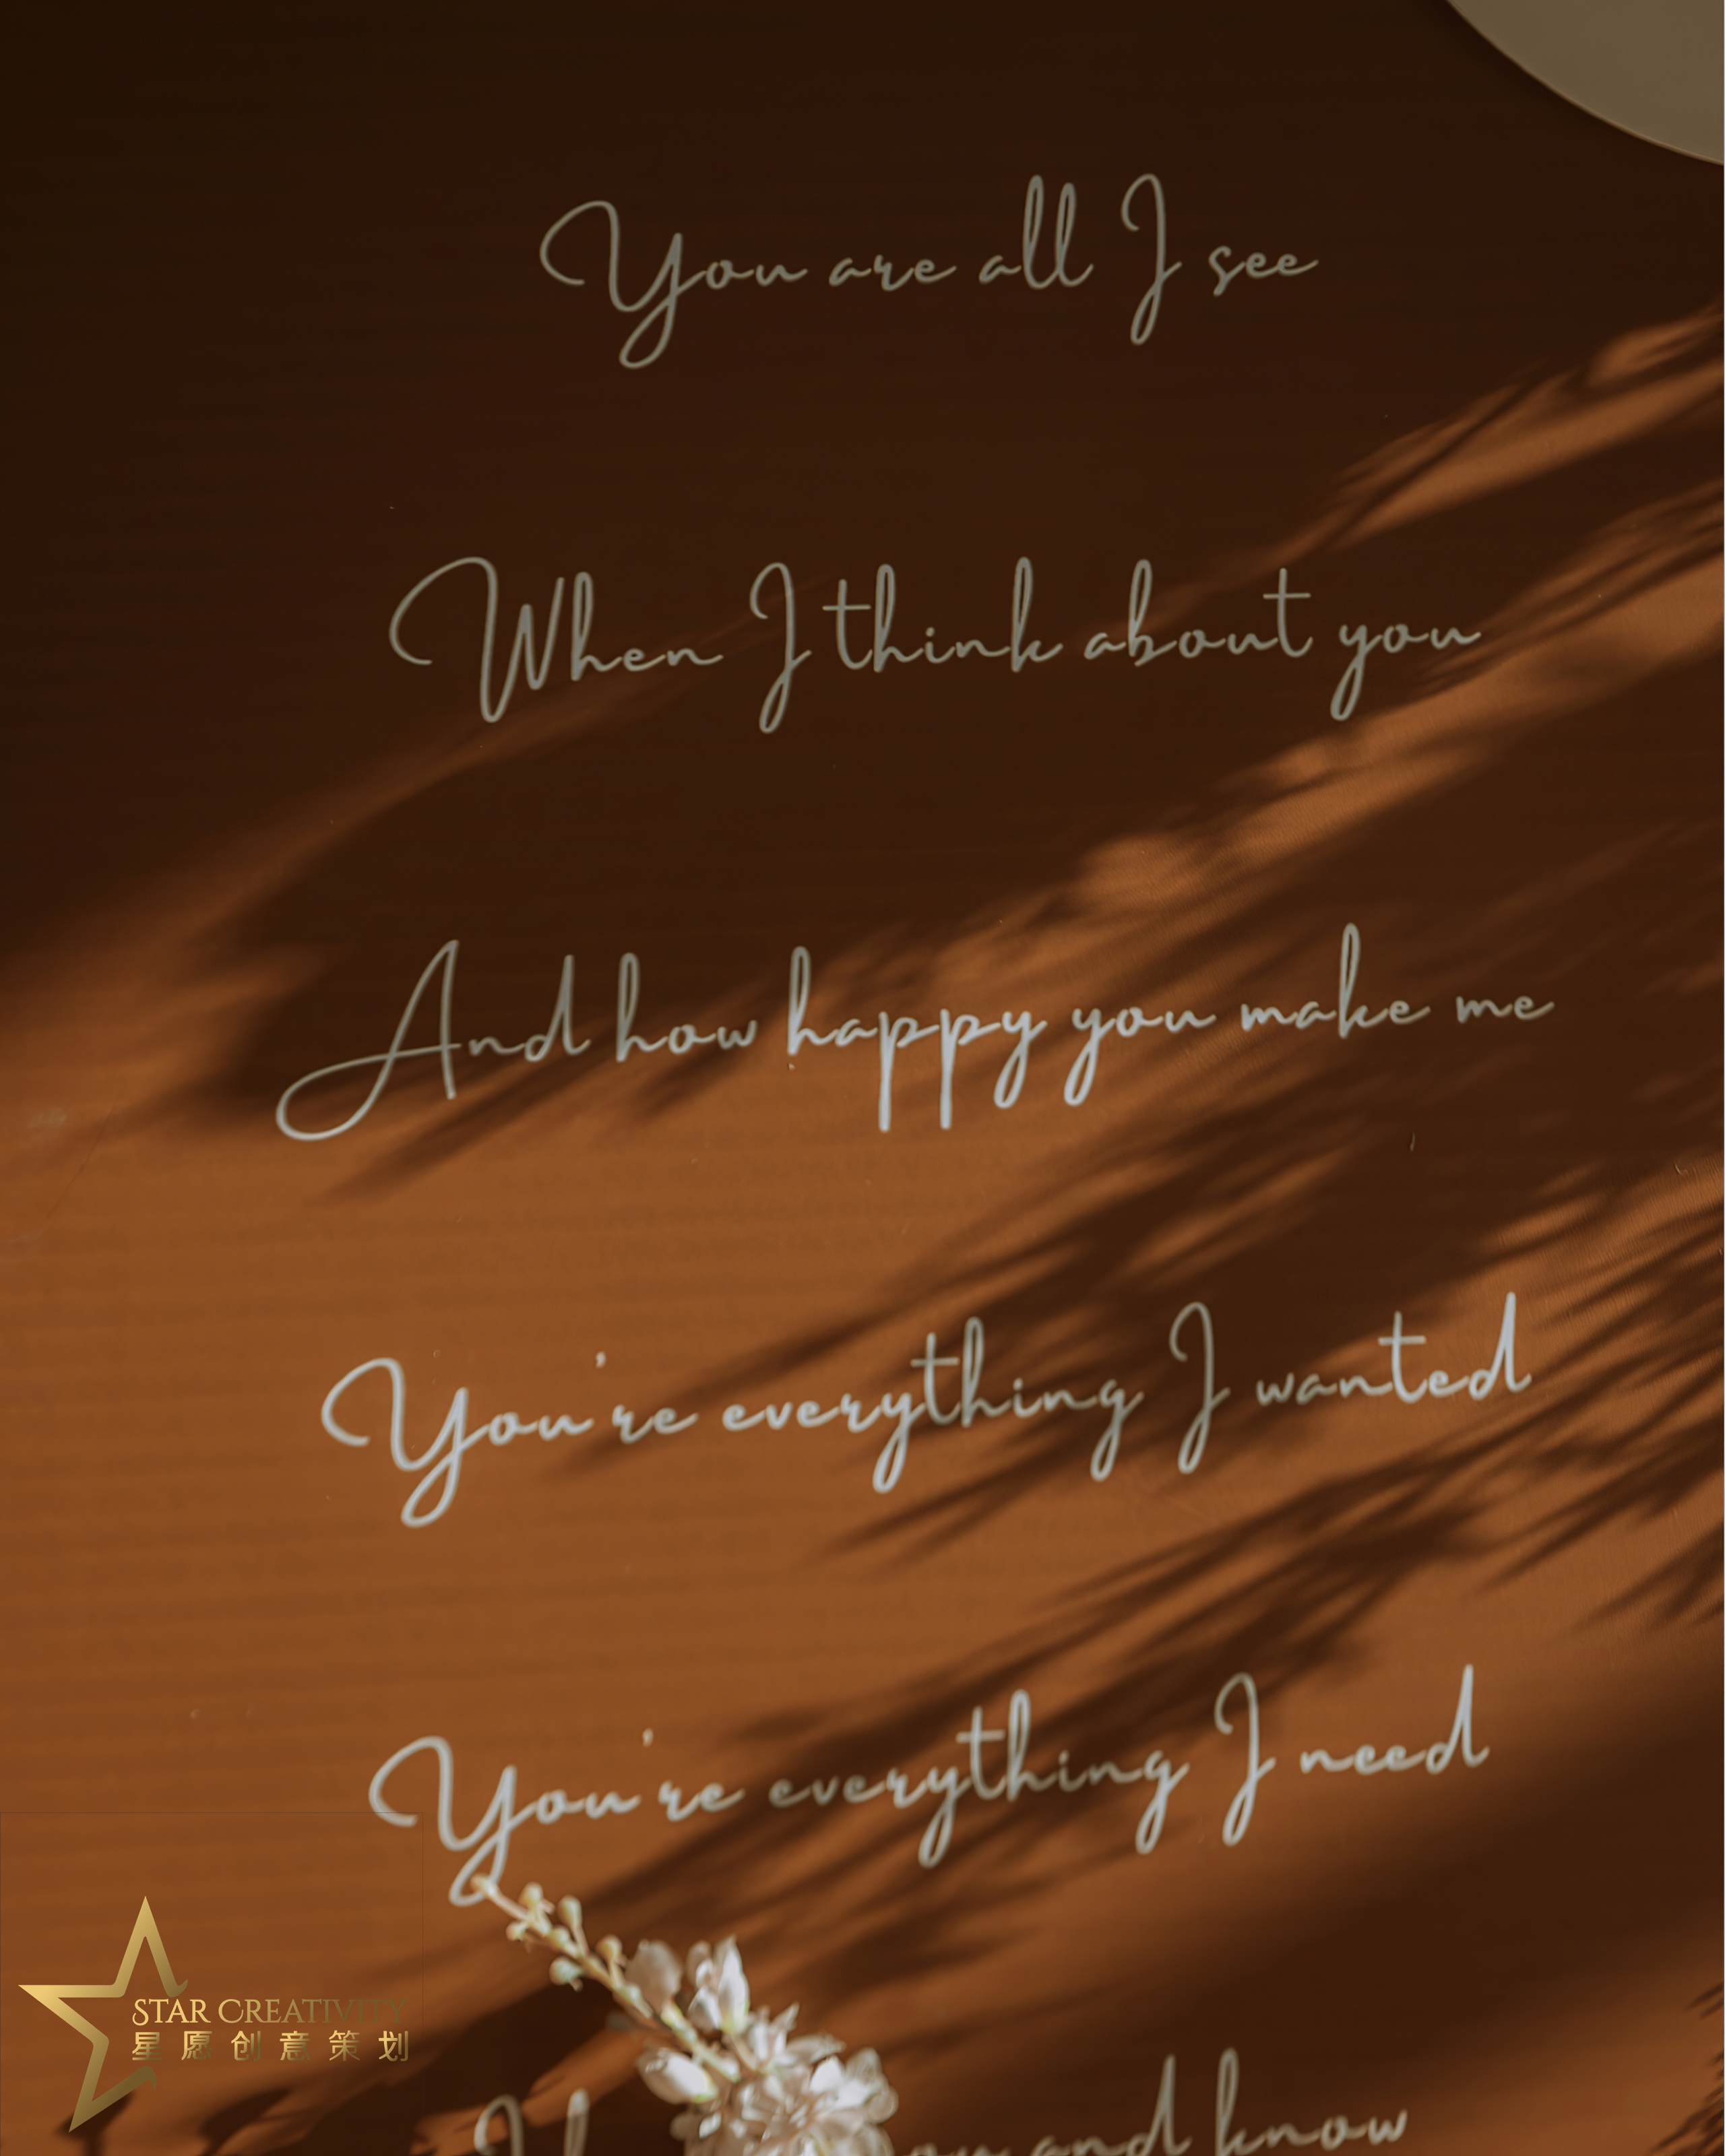 You are all I see
When I think about you
And how happy you make me
You're everything I wanted
You're everything I need
and know
STAR CREATIVITY
星愿创意策划